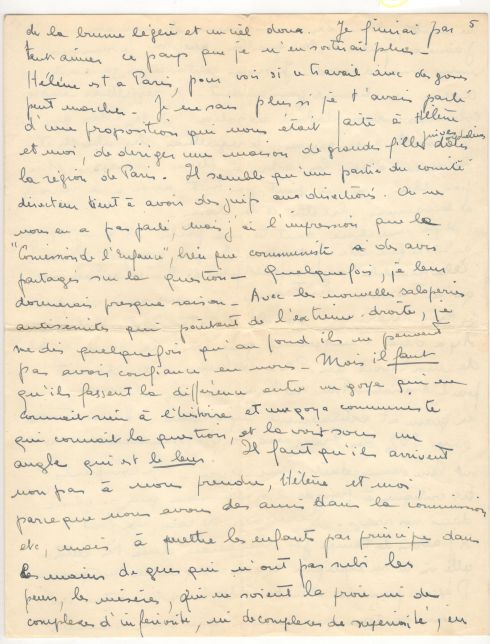 5
de la brume légère et un ciel doux. Je finirai par
tant aimer ce pays que je n'en sortirai plus -
Hélène est à Paris, pour voir si un travail avec des gosses
peut marcher. Je ne sais plus si je t'avais parlé
d'une proposition qui nous était faite à Hélène
et moi, de diriger une maison de grandes filles juives orphelines dans
la région de Paris. Il semble qu'une partie du comité
directeur tient à avoir des juifs aux directions. On ne
nous en a pas parlé, mais j'ai l'impression que la
"Commission de l'Enfance", bien que communiste a des avis
partagés sur la question - Quelquefois, je leur
donnerais presque raison - Avec les nouvelles saloperies
antisémites qui pointent de l'extrême-droite, je
me dis quelquefois qu'au fond ils ne peuvent
pas avoir confiance en nous - Mais il faut
qu'ils fassent la différence entre un goye qui ne
connait rien à l'histoire et un goye communiste
qui connait la question, et la voit sous un
angle qui est le leur. Il faut qu'ils arrivent
non pas à nous prendre, Hélène et moi
parce que nous avons des amis dans la commission
etc, mais à mettre les enfants par principe dans
les mains de gens qui n'ont pas subi les
peurs, les misères, qui ne soient la proie ni de
complexes d'infériorité, ni de complexes de supériorité, en